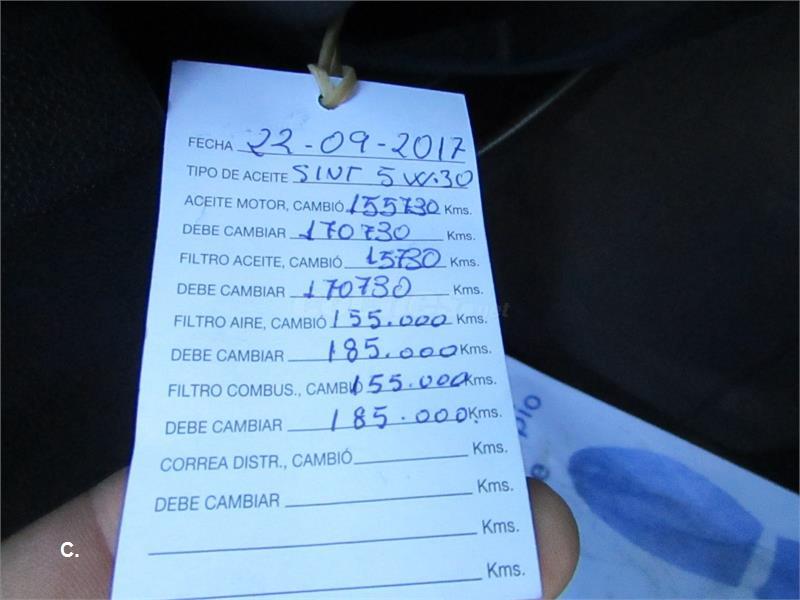 FECHA 22-09-2017
TIPO DE ACEITE SINT 5W.30
ACEITE MOTOR, CAMBIÓ 155730 Kms.
DEBE CAMBIAR 170730 Kms.
FILTRO ACEITE, CAMBIÓ 15730 Kms.
DEBE CAMBIAR 170730 Kms.
FILTRO AIRE, CAMBIÓ 155.000 Kms.
DEBE CAMBIAR 185.000 Kms.
FILTRO COMBUS., CAMBIÓ 155.000 Kms.
DEBE CAMBIAR 185.000 Kms.
CORREA DISTR., CAMBIÓ Kms.
DEBE CAMBIAR Kms.
Kms.
Kms.
C.